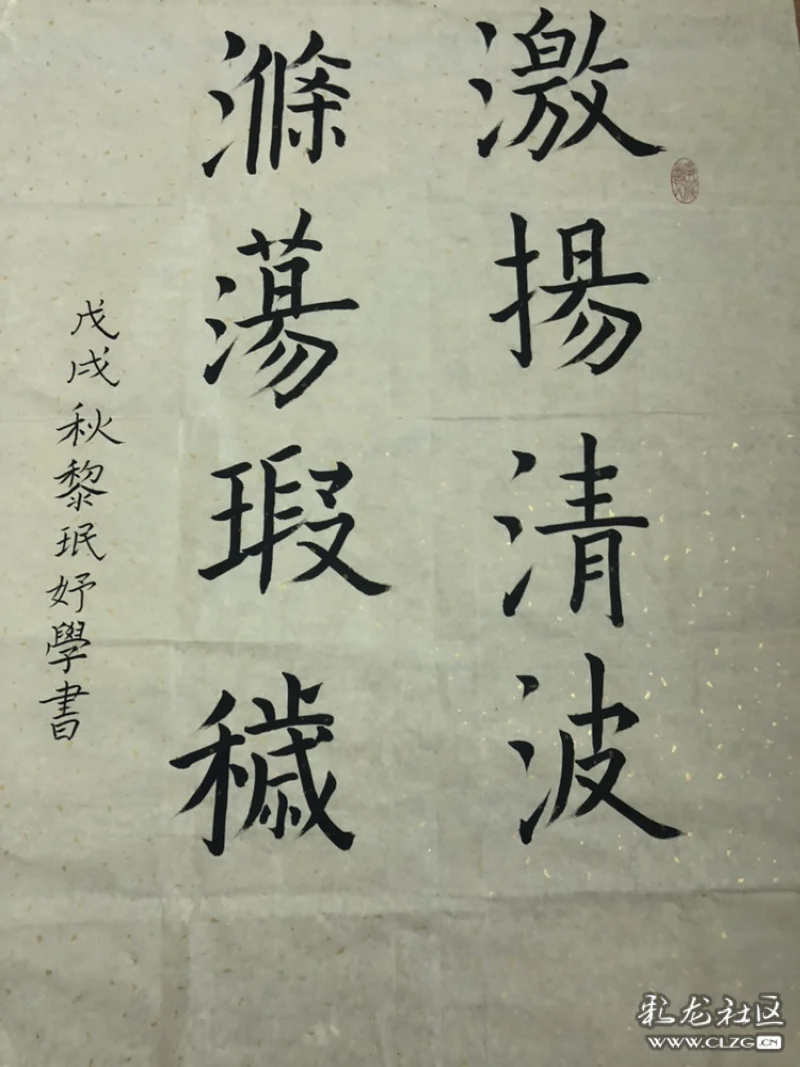 激揚清波
滌蕩瑕穢
戊戌秋黎珉妤學書
彩龙社区
WWW.CLZG.CN